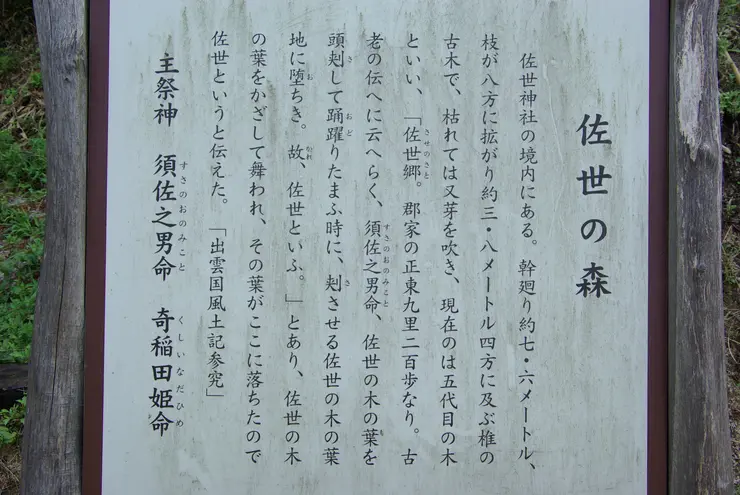 佐世の森
佐世神社の境内にある。幹廻り約七・六メートル、
枝が八方に拡がり約三・八メートル四方に及ぶ椎の
古木で、枯れては又芽を吹き、現在のは五代目の木
させのさと
といい、「佐世郷。郡家の正東九里二百歩なり。古
すさのおのみこと
老の伝へに云へらく、須佐之男命、佐世の木の葉を
さ おど さ
頭刾して踊躍りたまふ時に、刾させる佐世の木の葉
お かれ
地に堕ちき。故、佐世といふ。」とあり、佐世の木
の葉をかざして舞われ、その葉がここに落ちたので
佐世というと伝えた。「出雲国風土記参究」
すさのおのみこと くしいなだひめ
主祭神 須佐之男命 奇稲田姫命